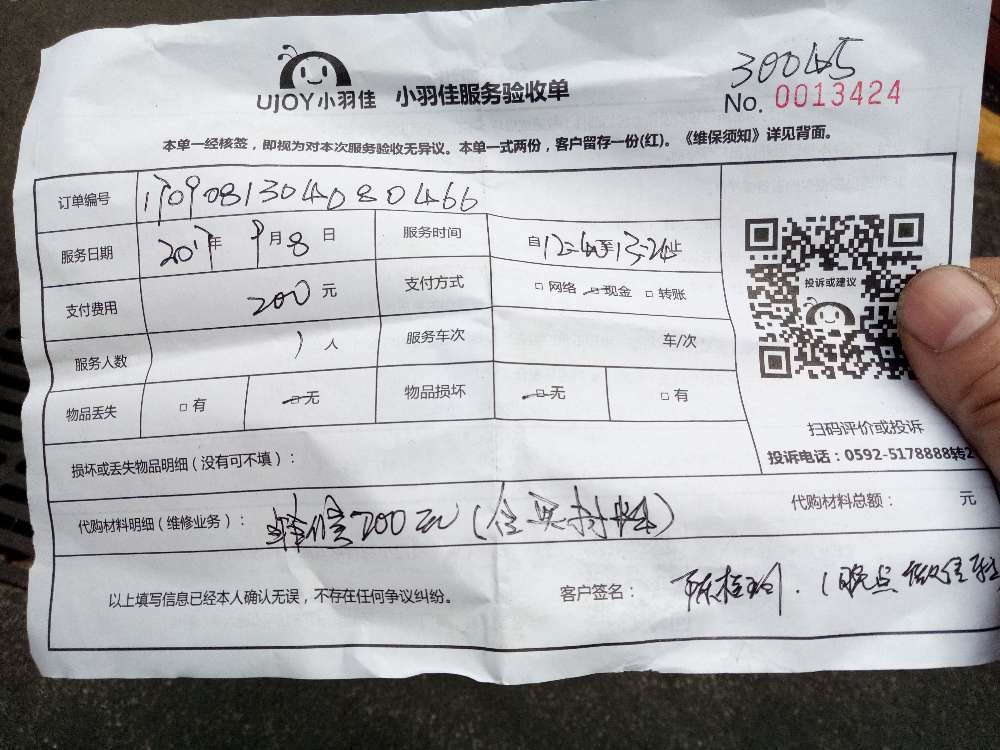 30045
UJOY小羽佳 小羽佳服务验收单
No. 0013424
本单一经核签，即视为对本次服务验收无异议。本单一式两份，客户留存一份(红)。《维保须知》详见背面。
订单编号 170908130408 0466
服务日期 2017年 9月8日 服务时间 自12:40至13:24止
支付费用 200元 支付方式 □网络 □现金 □转账
服务人数 1人 服务车次 车/次
物品丢失 □有 □无 物品损坏 □无 □有
投诉或建议
扫码评价或投诉
投诉电话：0592-5178888转2
损坏或丢失物品明细（没有可不填）：
代购材料明细（维修业务）： 维修200元（含 材料） 代购材料总额： 元
以上填写信息已经本人确认无误，不存在任何争议纠纷。 客户签名： 陈桂玲.（晚点